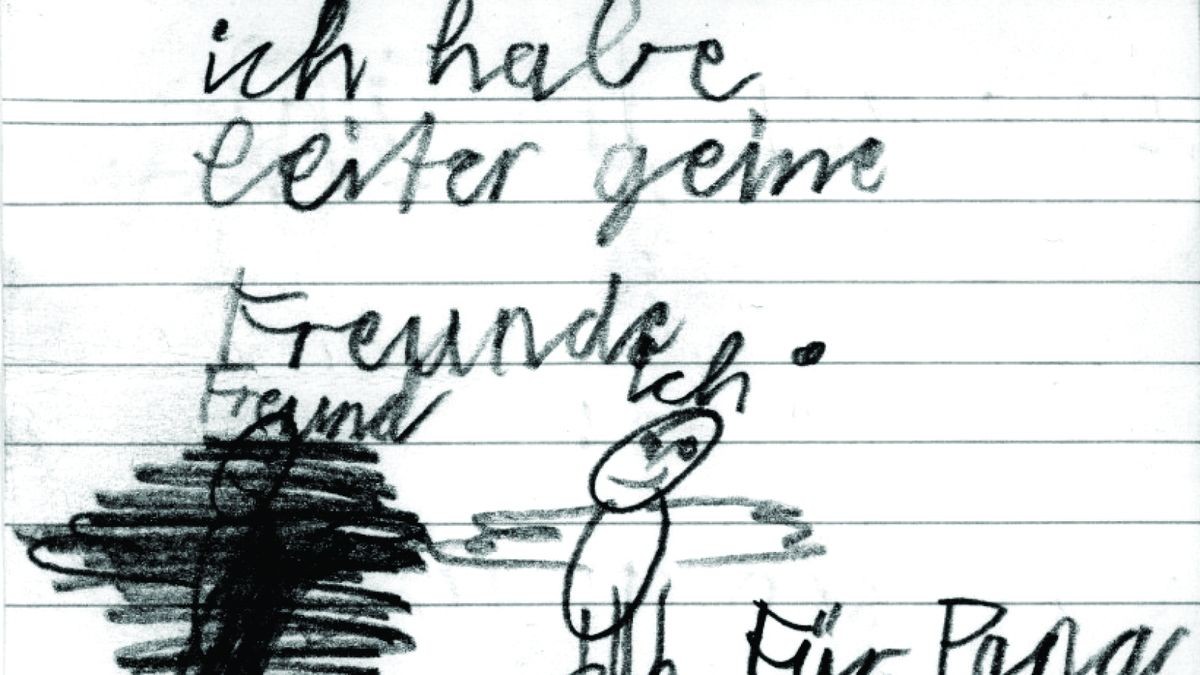 ich habe
leiter geine
Freunde.
ich
Freund
Für Papa